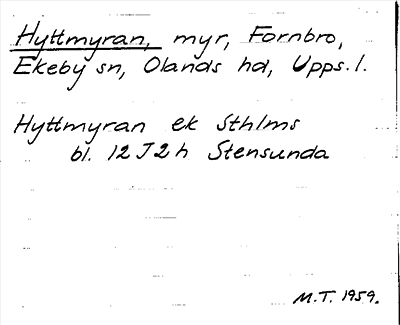 Hyttmyran, myr, Fornbro,
Ekeby sn, Olands hd, Upps. l.
Hyttmyran ek Sthlms
bl. 12 J 2 h Stensunda
M.T. 1959.